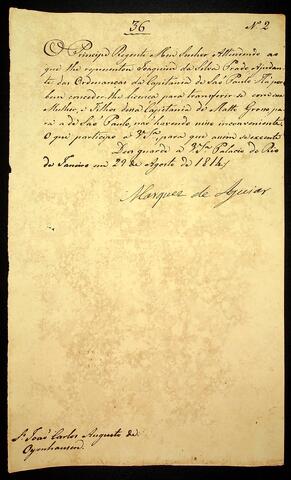 36
Nº 2
O Principe Regente Meu Senhor Attendendo ao
que lhe representou Joaquim da Silva Prado Ajudan-
te das Ordenanças da Capitania de São Paulo Ha por
bem conceder lhe licença para transferir se com sua
Mulher, e Filhos dessa Capitania de Matto Grosso pa-
ra a de São Paulo, não havendo nisso inconveniente.
O que participo a V.Sª para que assim se execute
Deos guarde a V.Sª Palacio do Rio
de Janeiro em 29 de Agosto de 1814
Marquez de Aguiar
Sr. João Carlos Augusto de
Oyenhausen